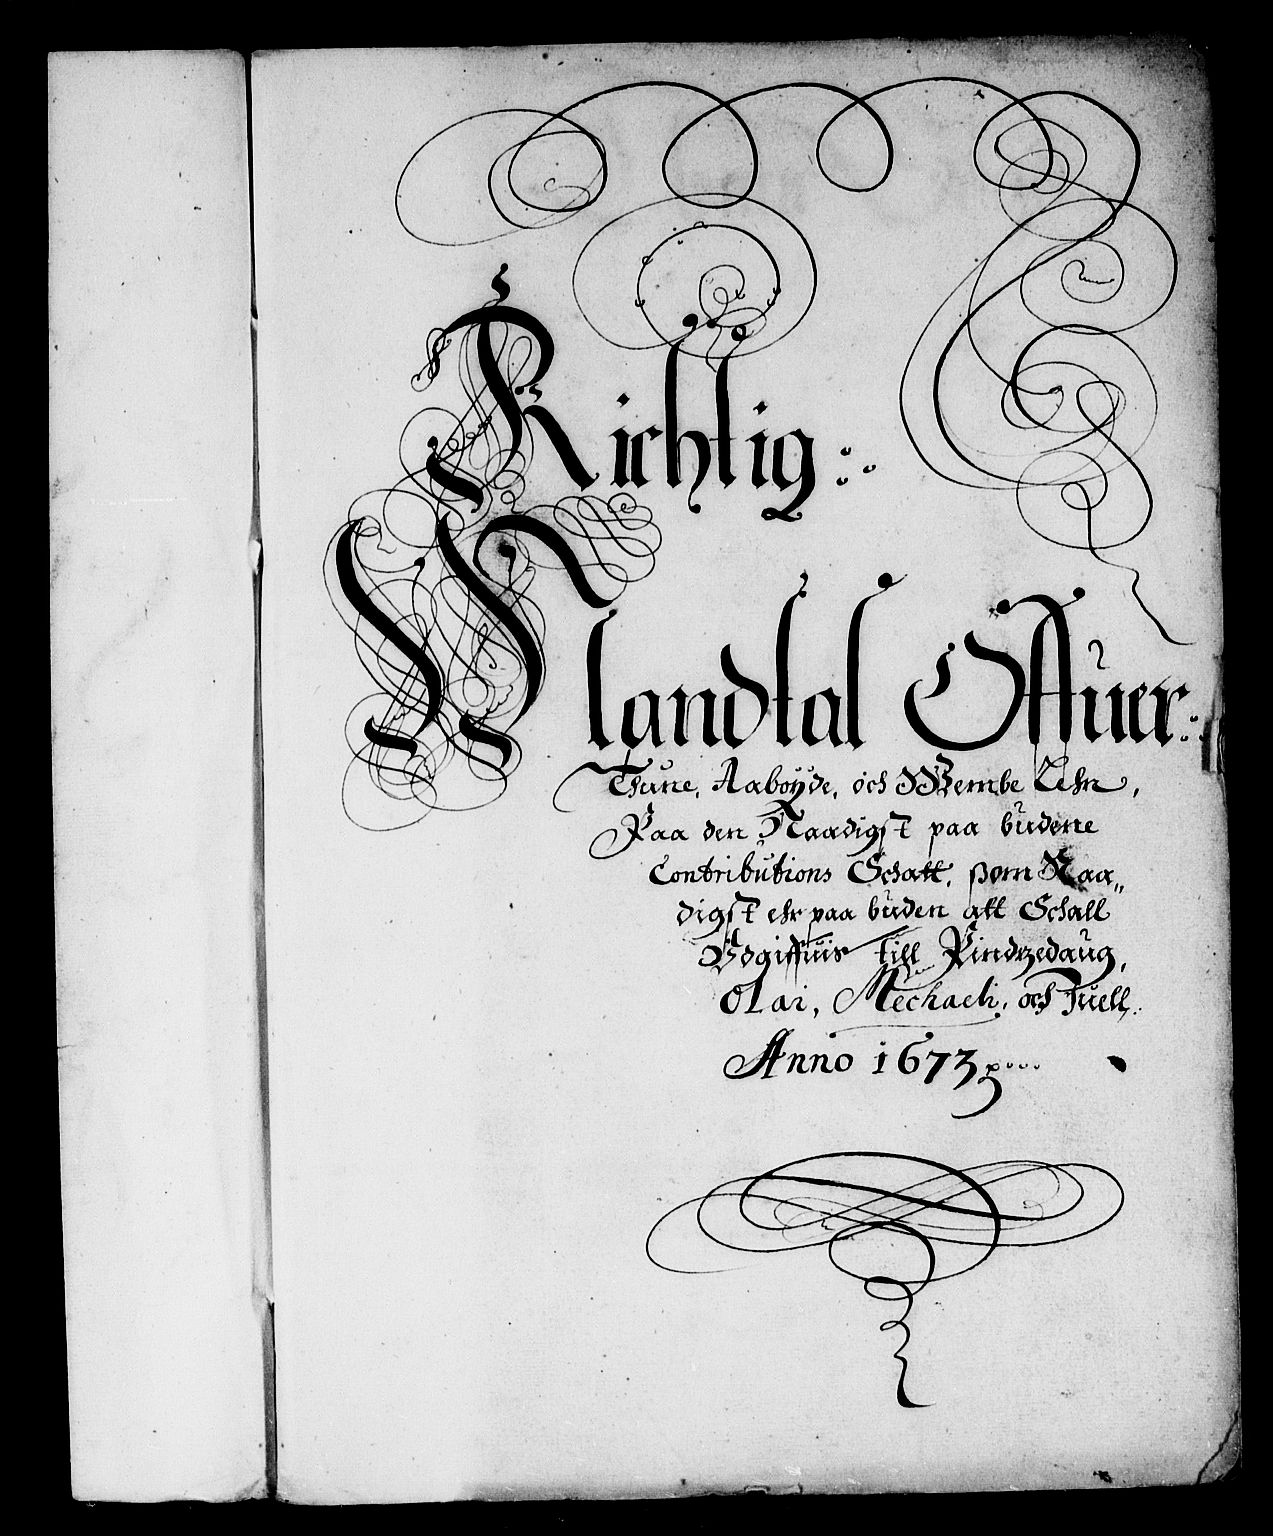 Richtig:
Mandtal Offuer:
Thune, Aaböyde, och Wembe Lehn,
Paa den Naadigst paa büdene
Contributions Schatt, som Naa„
digst ehr paa büden att Schall
Udgiffuis till Pindzedaug,
Olai, Mechaeli, och Juell.
Anno 1673